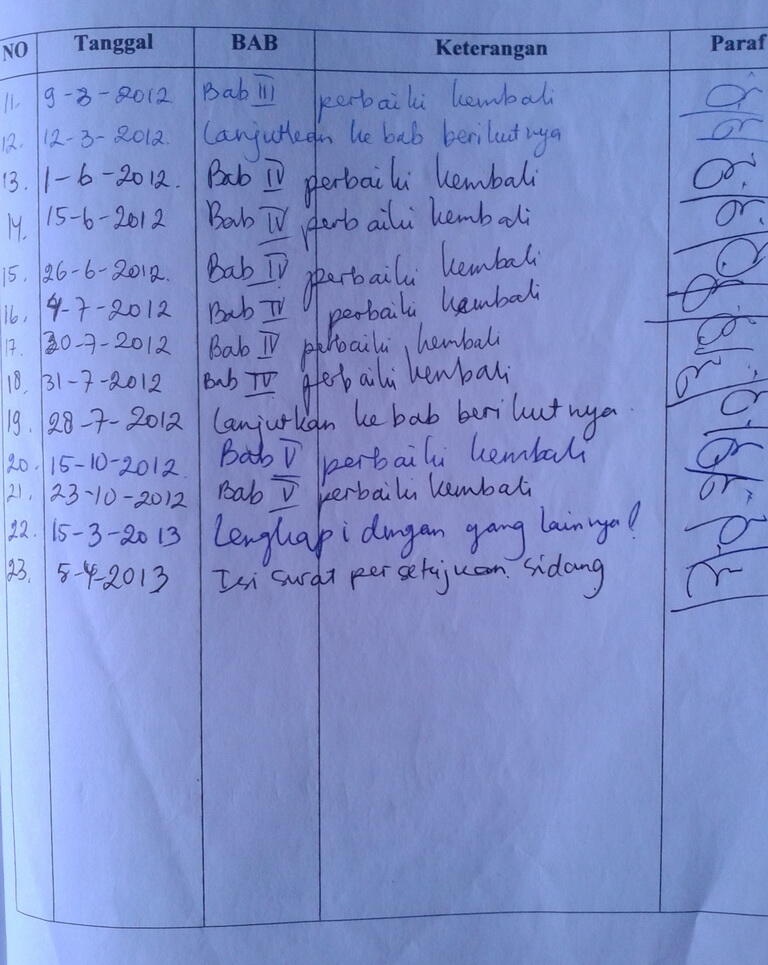 NO Tanggal BAB Keterangan Paraf
11. 9-3-2012 Bab III perbaiki kembali
12. 12-3-2012. Lanjutkan ke bab berikutnya
13. 1-6-2012. Bab IV perbaiki kembali
14. 15-6-2012 Bab IV perbaiki kembali
15. 26-6-2012. Bab IV perbaiki kembali
16. 4-7-2012 Bab IV perbaiki kembali
17. 20-7-2012 Bab IV perbaiki kembali
18. 31-7-2012 Bab IV perbaiki kembali
19. 28-7-2012 Lanjutkan ke bab berikutnya.
20. 15-10-2012. Bab V perbaiki kembali
21. 23-10-2012 Bab V perbaiki kembali
22. 15-3-2013 Lengkapi dengan yang lainnya!
23. 5-4-2013 Isi surat persetujuan sidang